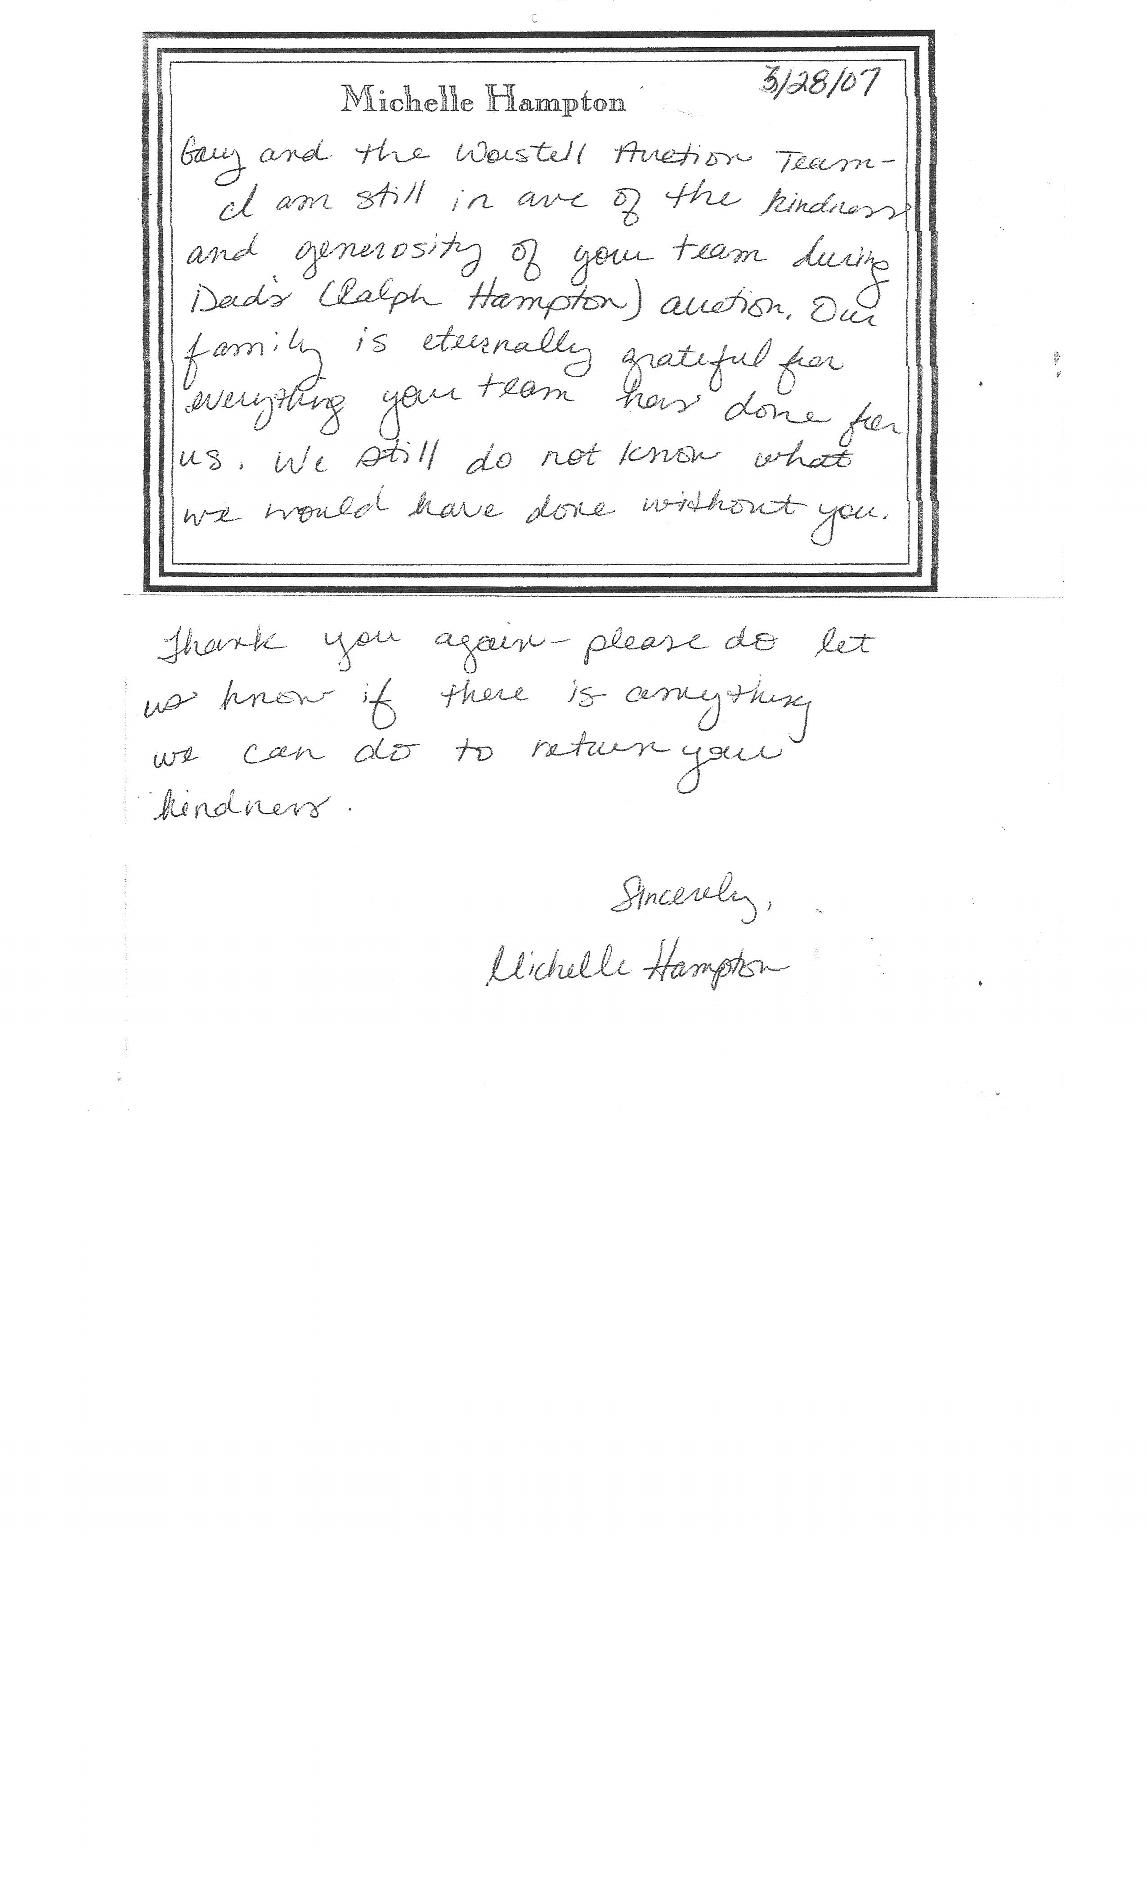 Michelle Hampton
3/28/07
Gary and the Wastell Auction Team-
I am still in awe of the kindness
and generosity of your team during
Dad's (Ralph Hampton) auction. Our
family is eternally grateful for
everything your team has done for
us. We still do not know what
we would have done without you.
Thank you again- please do let
us know if there is anything
we can do to return your
kindness.
Sincerely,
Michelle Hampton